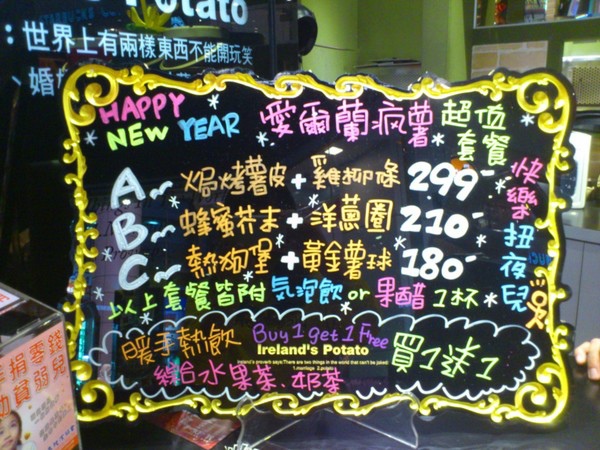 Potato
：世界上有兩樣東西不能開玩笑
、婚
HAPPY
NEW YEAR
愛爾蘭瘋薯超位
套餐
A~焗烤薯皮+雞柳條 299-
B~蜂蜜芥末+洋蔥圈 210-
C~熱狗堡+黃金薯球 180-
快樂扭夜兒
以上套餐皆附 氣泡飲 or 果醋 1杯
暖手熱飲
Buy 1 get 1 Free
買1送1
Ireland's Potato
Ireland's proverb says:There are two things in the world that can't be joked:
1.marriage 2.potato
綜合水果茶.奶茶
捐零錢
助貧弱兒